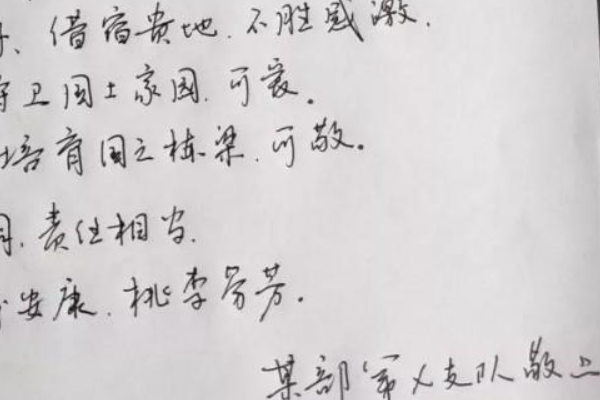 、借宿贵地.不胜感激.
守卫国土家园.可爱。
培育国之栋梁.可敬。
责任相当.
安康.桃李芬芳.
某部军X支队敬上